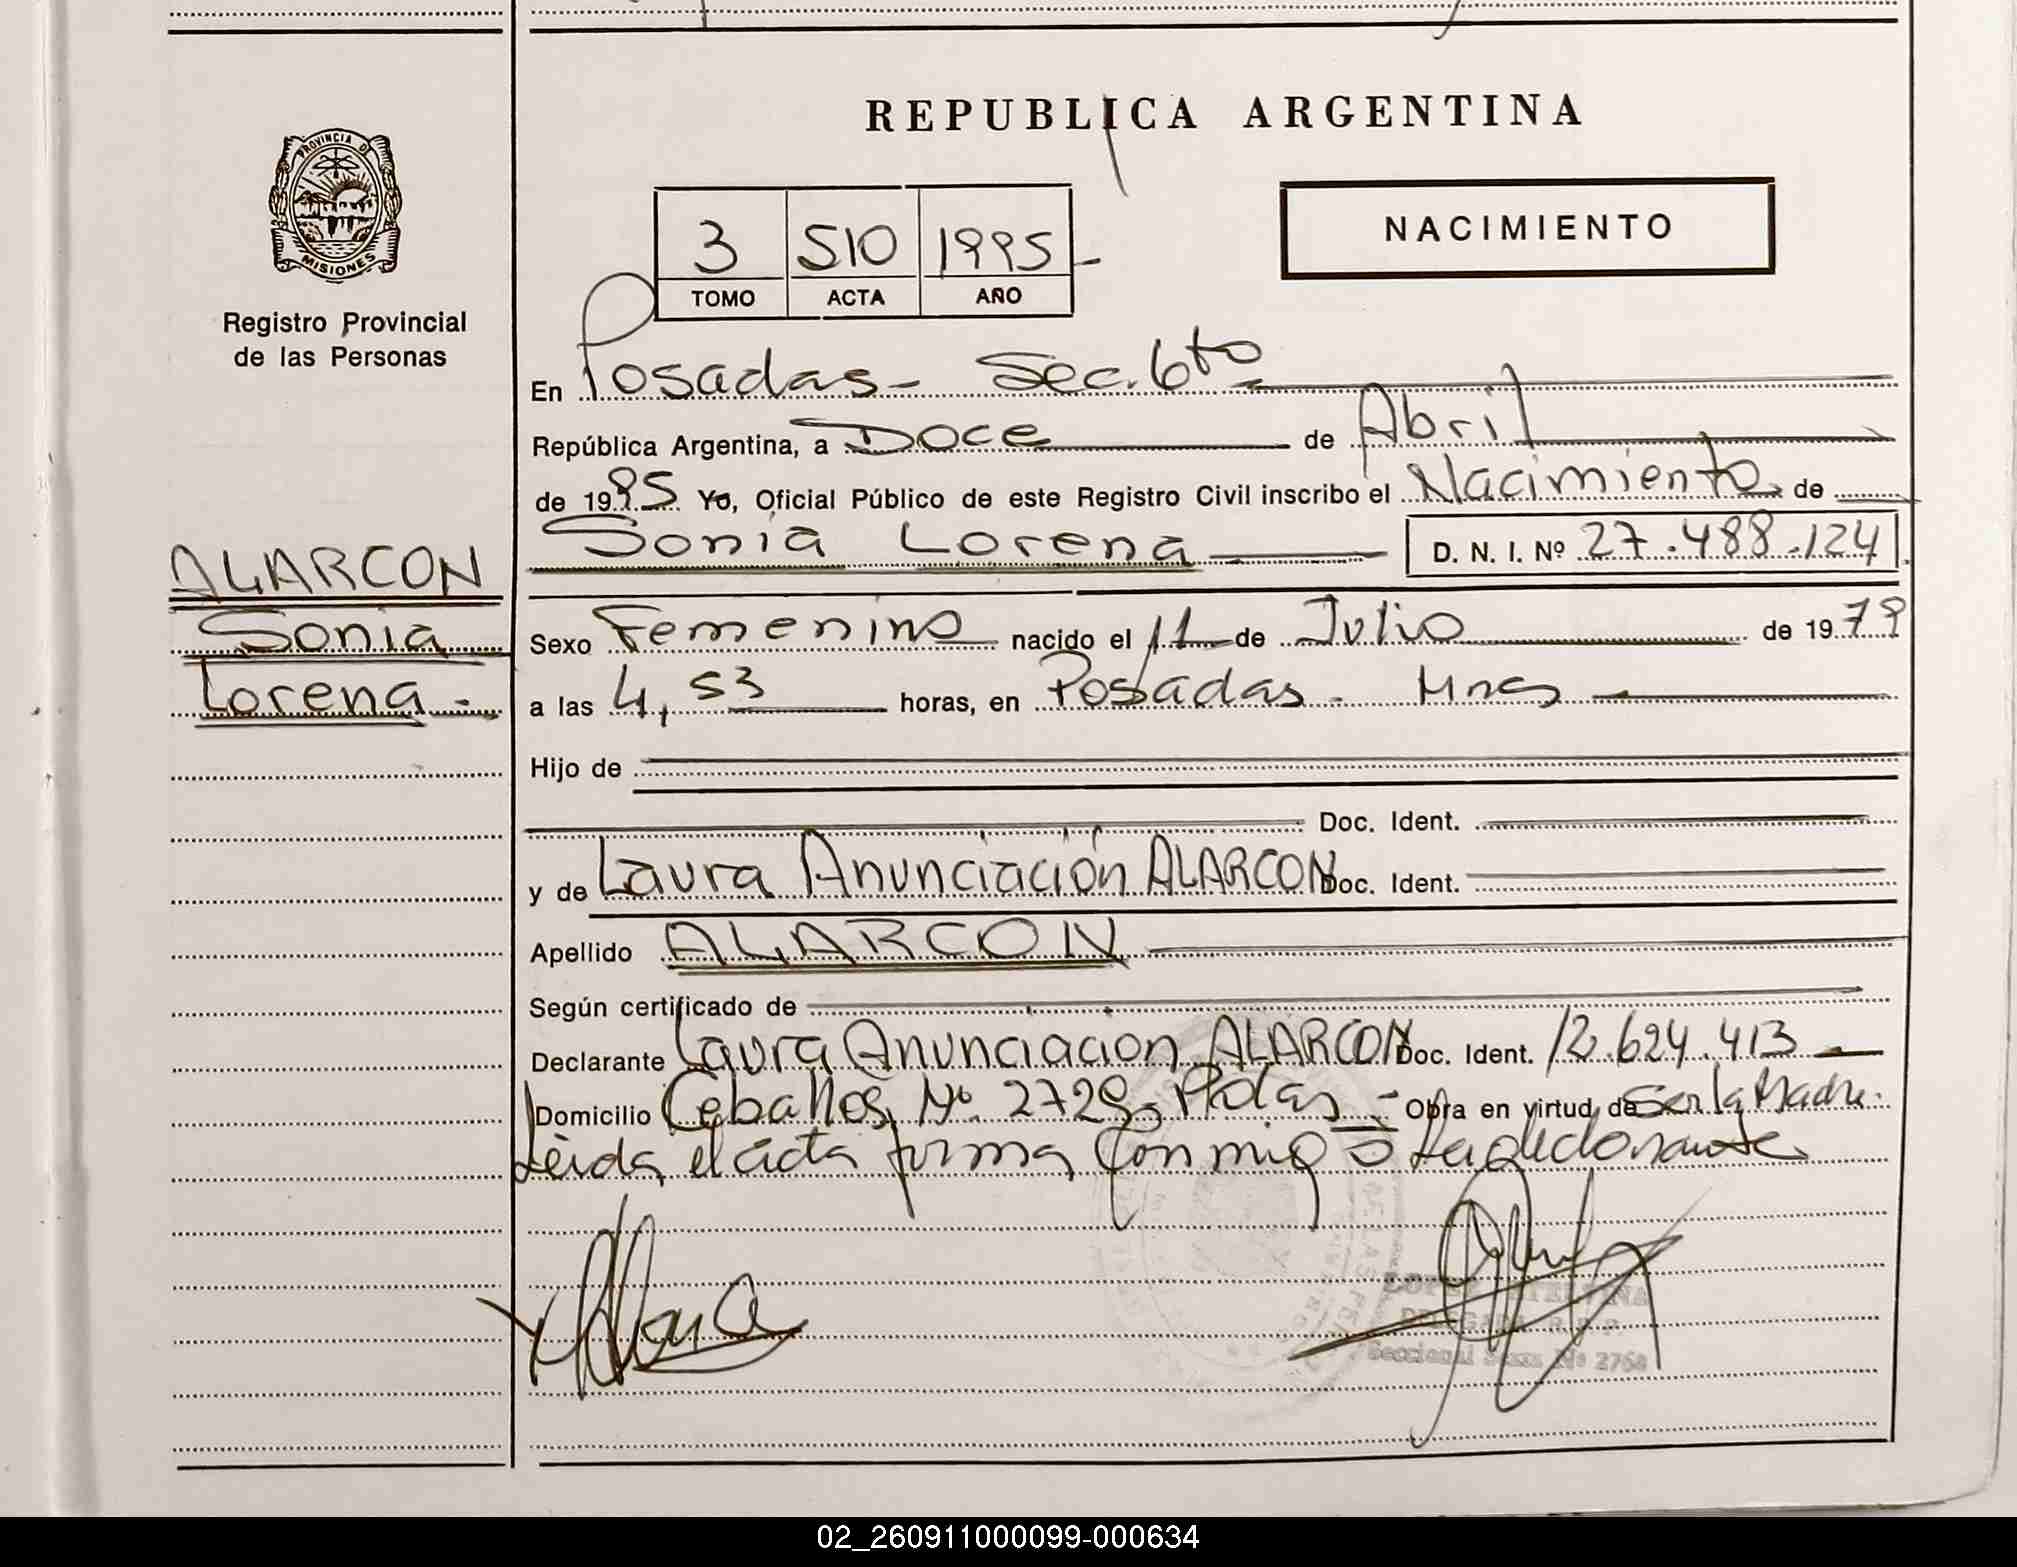 REPUBLICA ARGENTINA
PROVINCIA DE
MISIONES
Registro Provincial
de las Personas
NACIMIENTO
3 510 1995-
TOMO ACTA AÑO
En Posadas- Sec. 6to
República Argentina, a Doce de Abril
de 1995 Yo, Oficial Público de este Registro Civil inscribo el Nacimiento de
Sonia Lorena D. N. I. Nº 27.488.124
ALARCON
Sonia
Lorena.-
Sexo Femenino nacido el 11 de Julio de 1979
a las 4,53 horas, en Posadas- Mnes
Hijo de
Doc. Ident.
y de Laura Anunciación ALARCON Doc. Ident.
Apellido ALARCON
Según certificado de
Declarante Laura Anunciacion ALARCON Doc. Ident. 12.624.413
Domicilio Ceballos Nº 2729, Pdas- Obra en virtud de Ser la Madre.
Leida el acta firma Conmigo La declarante
DELEGADA R.P.P.
Seccional Sexta Nº 2768
02_260911000099-000634